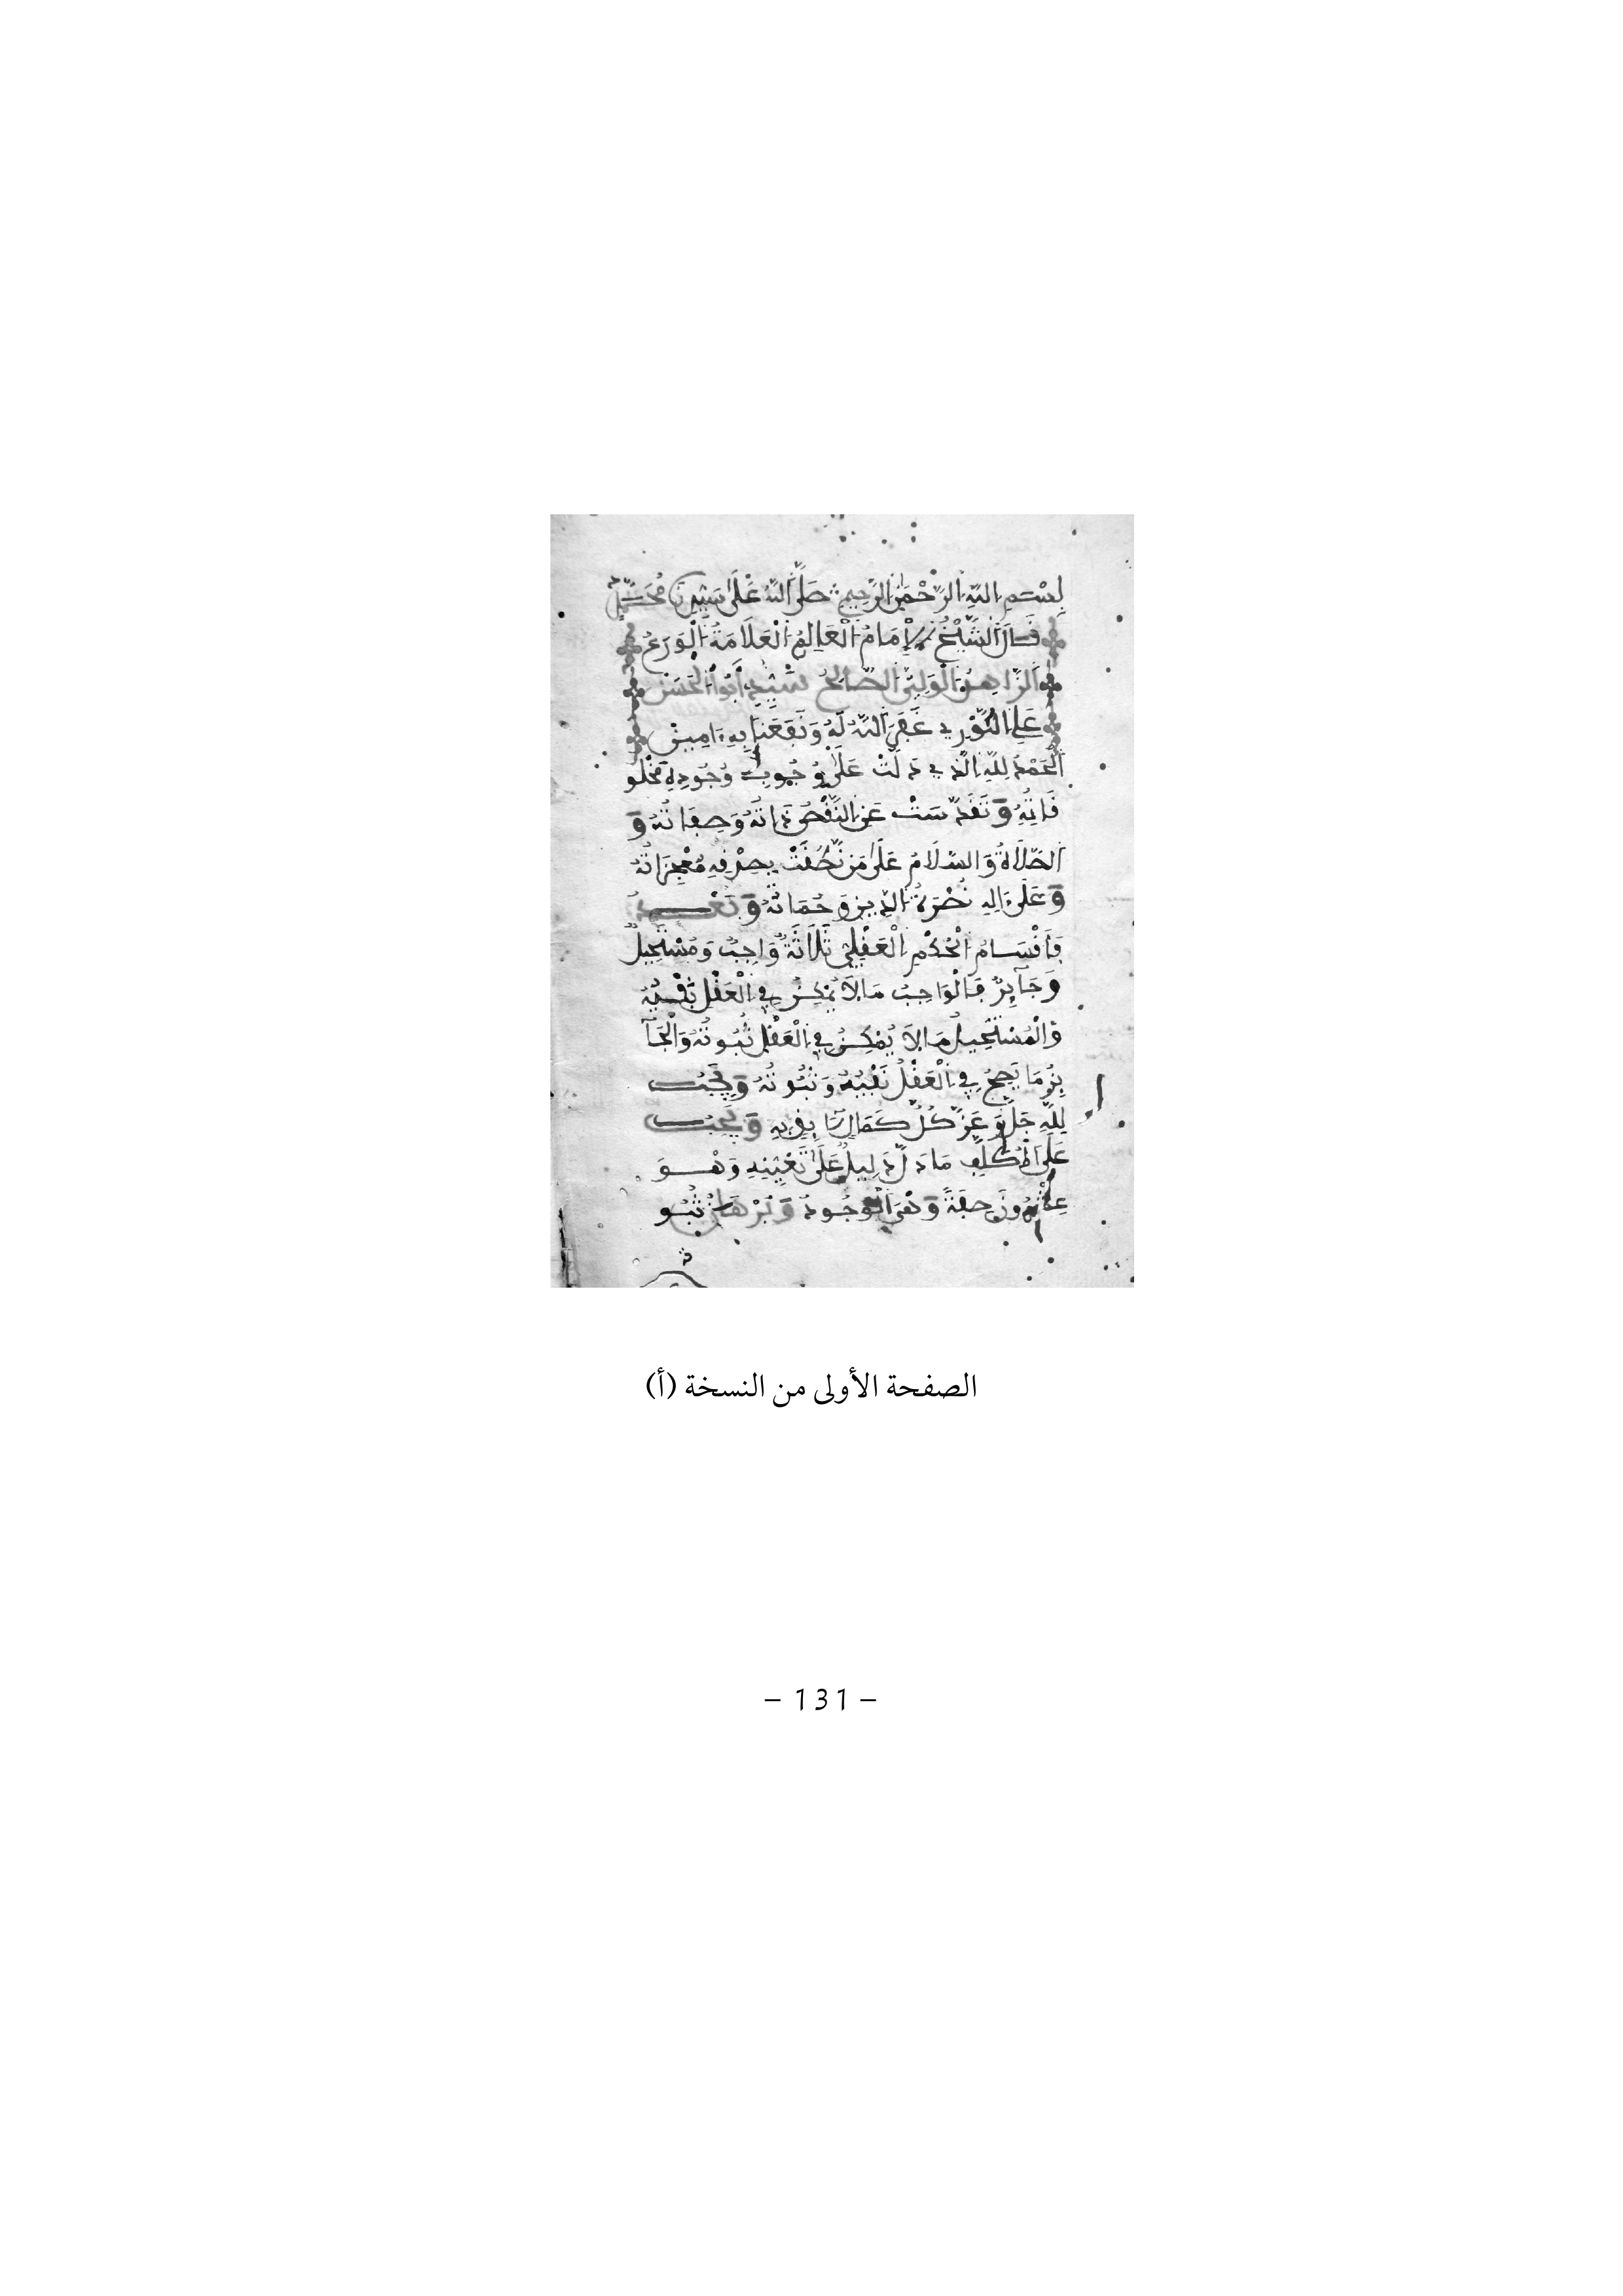 بِسْمِ اللَّهِ الرَّحْمَٰنِ الرَّحِيمِ صَلَّى اللَّهُ عَلَىٰ سَيِّدِنَا مُحَمَّدٍ
قَالَ الشَّيْخُ الْإِمَامُ الْعَالِمُ الْعَلَّامَةُ الْوَرِعُ
الزَّاهِدُ الْوَلِيُّ الصَّالِحُ سَيِّدِي أَبُو الْحَسَنِ
عَلِي النُّورِي غَفَرَ اللَّهُ لَهُ وَنَفَعَنَا بِهِ ءَامِينْ
الْحَمْدُ لِلَّهِ الَّذِي دَلَّتْ عَلَىٰ وُجُوبِ وُجُودِهِ مَخْلُو
قَاتُهُ وَتَقَدَّسَتْ عَنِ النَّقْصِ ذَاتُهُ وَصِفَاتُهُ وَ
الصَّلَاةُ وَالسَّلَامُ عَلَىٰ مَن نَّطَقَتْ بِصِدْقِهِ مُعْجِزَاتُهُ
وَعَلَىٰ ءَالِهِ نُصْرَةُ الدِّينِ وَحُمَاتُهُ وَبَعْدُ
فَأَقْسَامُ الْحُكْمِ الْعَقْلِيِّ ثَلَاثَةٌ وَاجِبٌ وَمُسْتَحِيلٌ
وَجَآئِزٌ فَالْوَاجِبُ مَا لَا يُمْكِنُ فِي الْعَقْلِ نَفْيُهُ
وَالْمُسْتَحِيلُ مَا لَا يُمْكِنُ فِي الْعَقْلِ ثُبُوتُهُ وَالْجَآ
ئِزُ مَا يَصِحُّ فِي الْعَقْلِ نَفْيُهُ وَثُبُوتُهُ وَيَجِبُ
لِلَّهِ جَلَّ وَعَزَّ كُلُّ كَمَالٍ لَائِقٍ بِهِ وَيَجِبُ
عَلَى الْمُكَلَّفِ مَا دَلَّ دَلِيلٌ عَلَىٰ تَعْيِينِهِ وَهْوَ
عِشْرُونَ صِفَةً وَهْيَ الْوُجُودُ وَبُرْهَانُ ثُبُو
الصفحة الأولى من النسخة (أ)
– 131 –